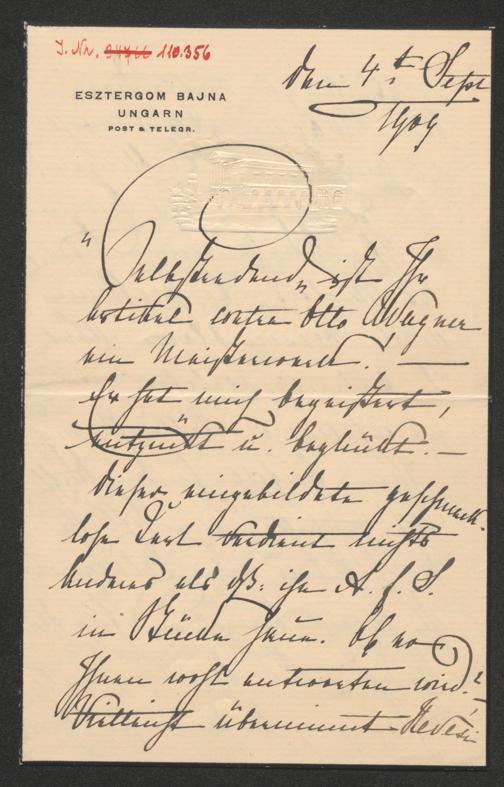 J. Nr. 110.356
ESZTERGOM BAJNA
UNGARN
POST & TELEGR.
den 4t. Sept
1909
"Selbstredend" ist Ihr
Artikel contra Otto Wagner
ein Meisterwerk! —
Er hat mich begeistert,
entzückt u. beglückt. —
Dieser eingebildete geschmack-
lose verdient nichts
Anderes als dß: ihn A. F. S.
in Stücke haue. Ob er
Ihnen wohl antworten wird?
Vielleicht übernimmt Hevesi